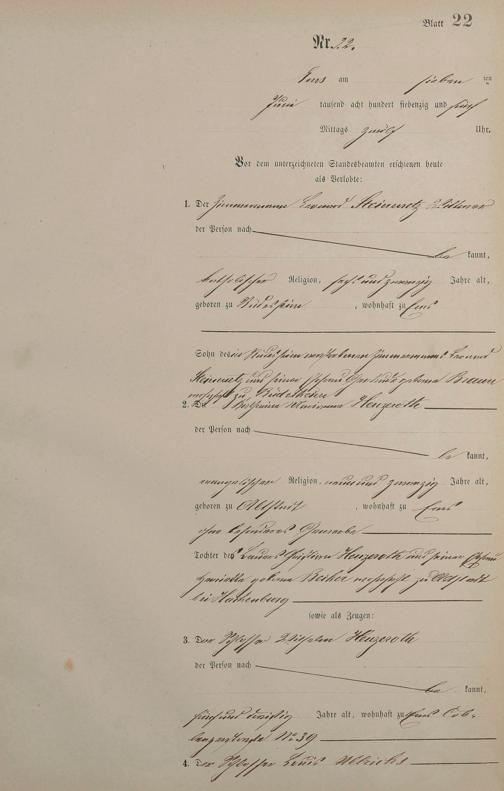 Blatt 22
Nr. 22.
Ems am sieben ten
Juni tausend acht hundert siebenzig und fünf
Mittags zwölf Uhr.
Vor dem unterzeichneten Standesbeamten erschienen heute
als Verlobte:
1. Der Zimmermann Leonard Steinmetz
der Person nach
be kannt,
katholischer Religion, sechs und zwanzig Jahre alt,
geboren zu Rüdesheim, wohnhaft zu Ems
Sohn des zu Rüdesheim verstorbenen Zimmermanns Leonard
Steinmetz und seiner Ehefrau Gertrude geborene Braun
wohnhaft zu Rüdesheim
2. Die Marianne Henzeroth
der Person nach
be kannt,
evangelischer Religion, neun und zwanzig Jahre alt,
geboren zu Altstadt, wohnhaft zu Ems
ohne besonderes Gewerbe
Tochter des Christian Henzeroth und seiner Ehefrau
Henriette geborene Becker wohnhaft zu Altstadt
bei Hachenburg
sowie als Zeugen:
3. Der Schlosser Wilhelm Henzeroth
der Person nach
be kannt,
fünf und dreißig Jahre alt, wohnhaft zu Ems Cob-
lenzerstraße No 39
4. Der Schlosser Louis Ulrichs